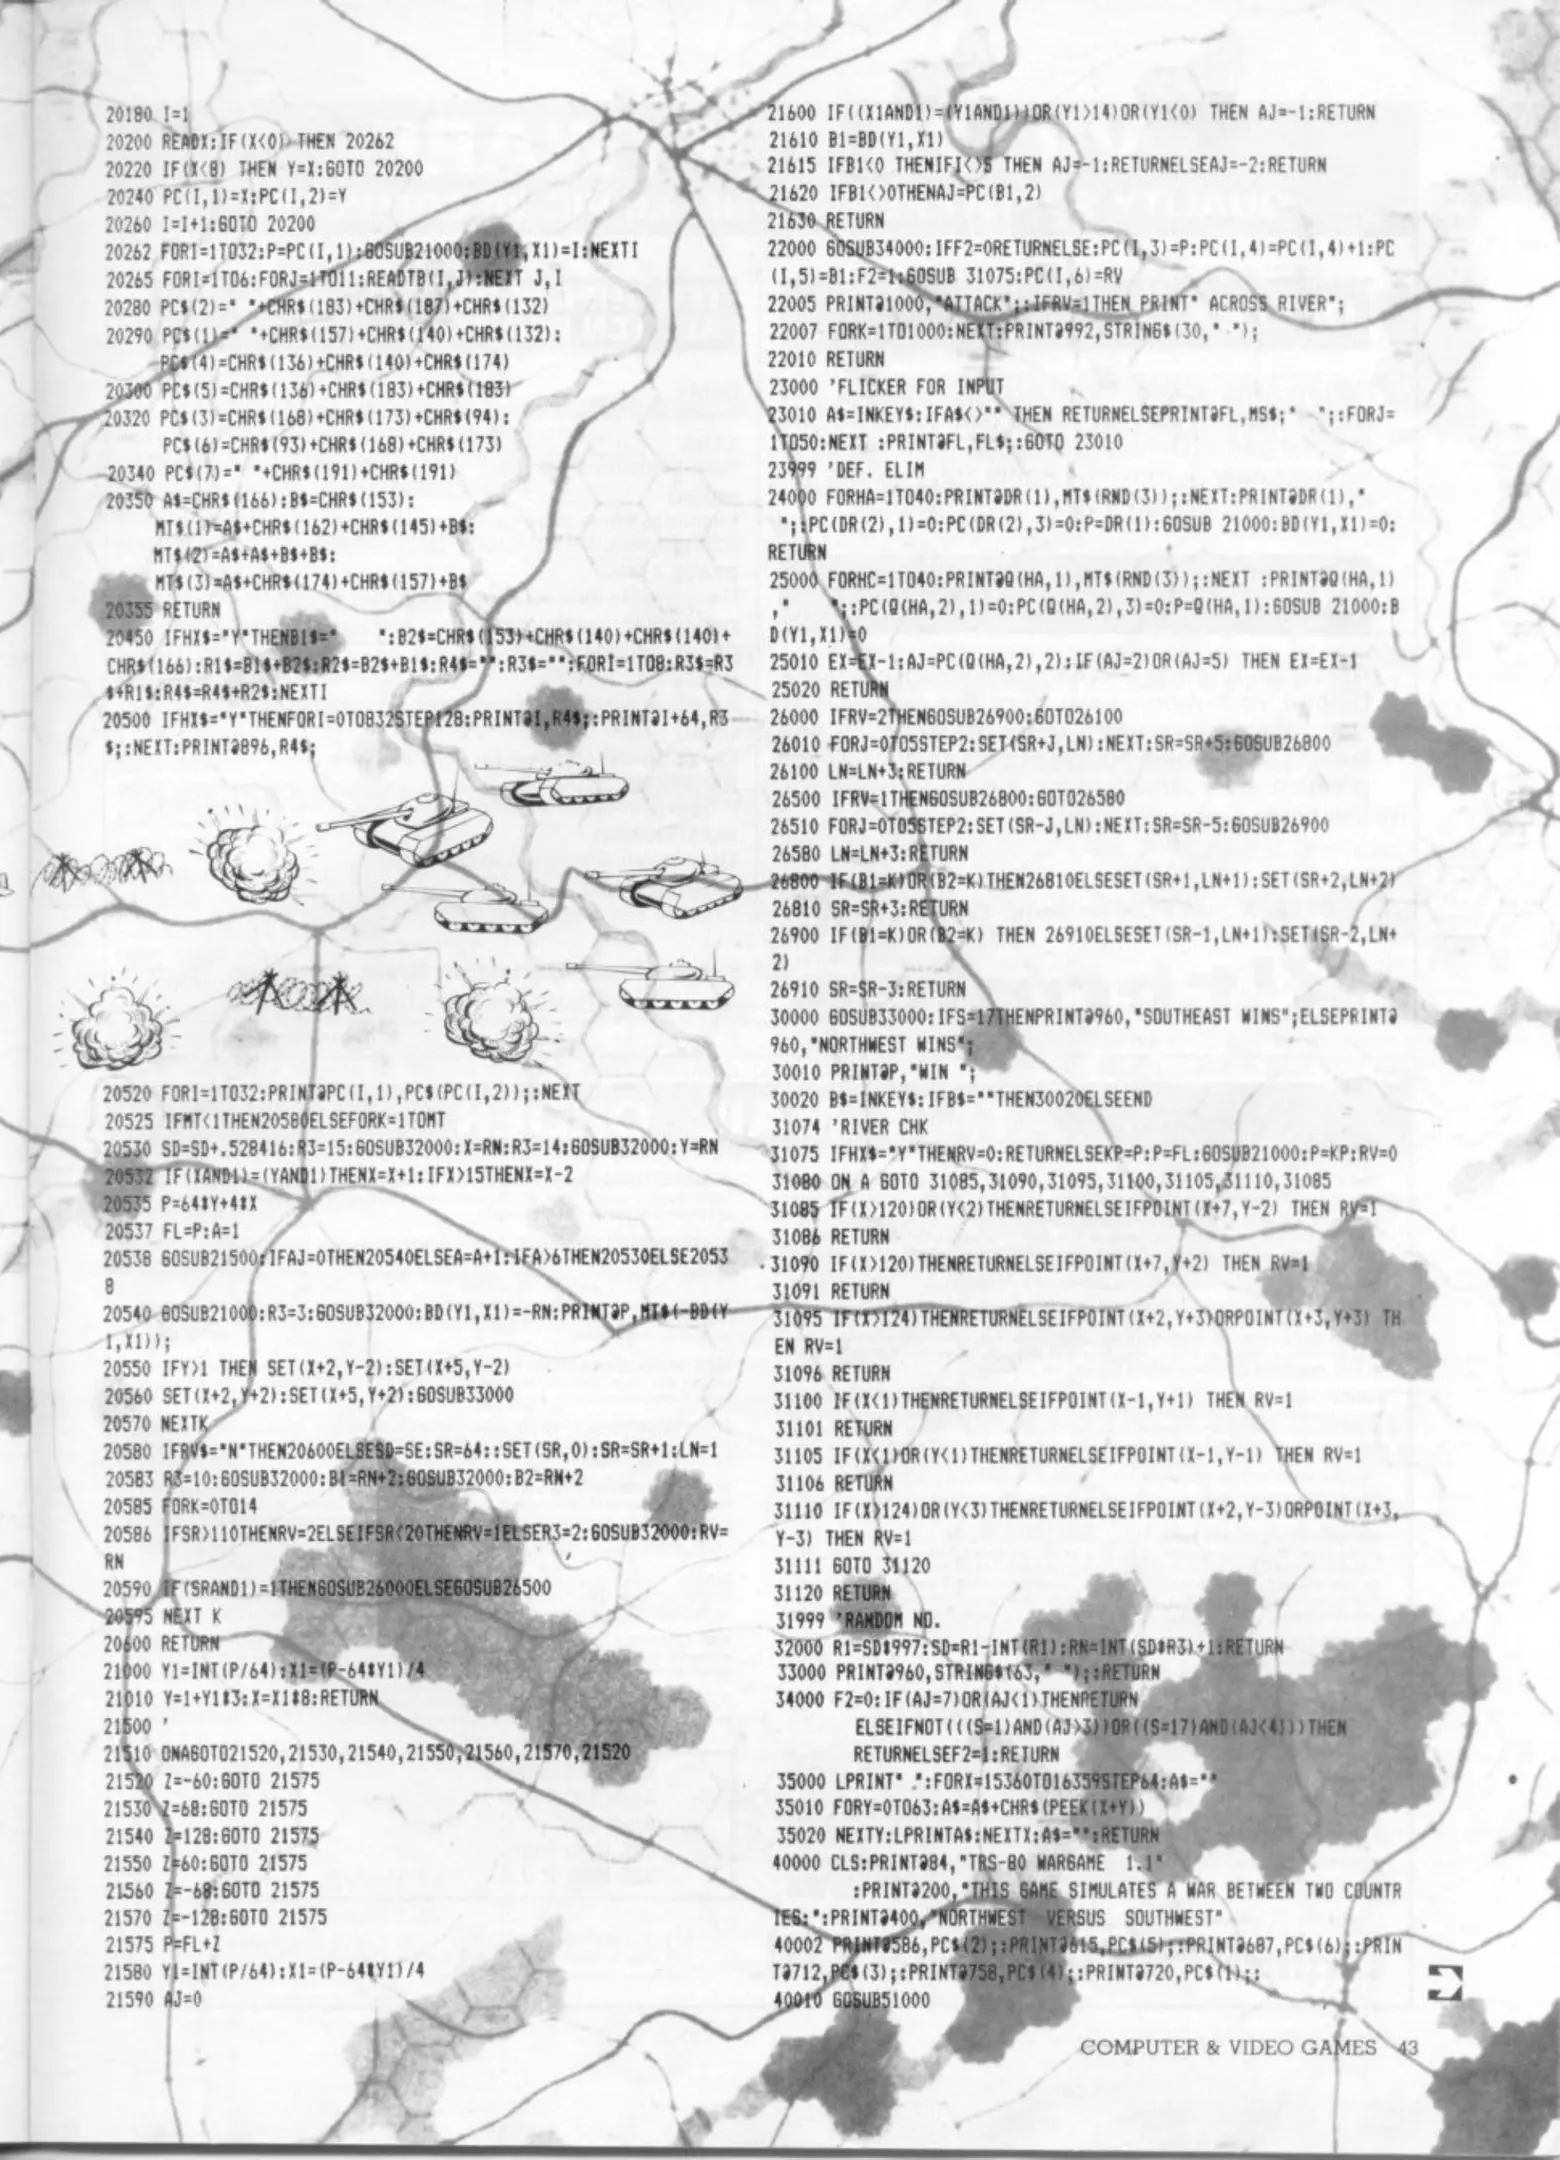 20180 I=1
20200 READX:IF(X<0) THEN 20262
20220 IF(X<8) THEN Y=X:GOTO 20200
20240 PC(I,1)=X:PC(I,2)=Y
20260 I=I+1:GOTO 20200
20262 FORI=1TO32:P=PC(I,1):GOSUB21000:BD(Y1,X1)=I:NEXTI
20265 FORI=1TO6:FORJ=1TO11:READTB(I,J):NEXT J,I
20280 PC$(2)=" "+CHR$(183)+CHR$(187)+CHR$(132)
20290 PC$(1)=" "+CHR$(157)+CHR$(140)+CHR$(132):
PC$(4)=CHR$(136)+CHR$(140)+CHR$(174)
20300 PC$(5)=CHR$(136)+CHR$(183)+CHR$(183)
20320 PC$(3)=CHR$(168)+CHR$(173)+CHR$(94):
PC$(6)=CHR$(93)+CHR$(168)+CHR$(173)
20340 PC$(7)=" "+CHR$(191)+CHR$(191)
20350 A$=CHR$(166):B$=CHR$(153):
MT$(1)=A$+CHR$(162)+CHR$(145)+B$:
MT$(2)=A$+A$+B$+B$:
MT$(3)=A$+CHR$(174)+CHR$(157)+B$
20355 RETURN
20450 IFHX$="Y"THENB1$="    ":B2$=CHR$(153)+CHR$(140)+CHR$(140)+
CHR$(166):R1$=B1$+B2$:R2$=B2$+B1$:R4$="":R3$="":FORI=1TO8:R3$=R3
$+R1$:R4$=R4$+R2$:NEXTI
20500 IFHX$="Y"THENFORI=0TO832STEP128:PRINT@I,R4$;:PRINT@I+64,R3
$;:NEXT:PRINT@896,R4$;
20520 FORI=1TO32:PRINT@PC(I,1),PC$(PC(I,2));:NEXT
20525 IFMT<1THEN20580ELSEFORK=1TOMT
20530 SD=SD+.528416:R3=15:GOSUB32000:X=RN:R3=14:GOSUB32000:Y=RN
20532 IF(XAND1)=(YAND1)THENX=X+1:IFX>15THENX=X-2
20535 P=64*Y+4*X
20537 FL=P:A=1
20538 GOSUB21500:IFAJ=0THEN20540ELSEA=A+1:IFA>6THEN20530ELSE2053
8
20540 GOSUB21000:R3=3:GOSUB32000:BD(Y1,X1)=-RN:PRINT@P,MT$(-BD(Y
1,X1));
20550 IFY>1 THEN SET(X+2,Y-2):SET(X+5,Y-2)
20560 SET(X+2,Y+2):SET(X+5,Y+2):GOSUB33000
20570 NEXTK
20580 IFRV$="N"THEN20600ELSESD=SE:SR=64::SET(SR,0):SR=SR+1:LN=1
20583 R3=10:GOSUB32000:B1=RN+2:GOSUB32000:B2=RN+2
20585 FORK=0TO14
20586 IFSR>110THENRV=2ELSEIFSR<20THENRV=1ELSER3=2:GOSUB32000:RV=
RN
20590 IF(SRAND1)=1THENGOSUB26000ELSEGOSUB26500
20595 NEXT K
20600 RETURN
21000 Y1=INT(P/64):X1=(P-64*Y1)/4
21010 Y=1+Y1*3:X=X1*8:RETURN
21500 '
21510 ONAGOTO21520,21530,21540,21550,21560,21570,21520
21520 Z=-60:GOTO 21575
21530 Z=68:GOTO 21575
21540 Z=128:GOTO 21575
21550 Z=60:GOTO 21575
21560 Z=-68:GOTO 21575
21570 Z=-128:GOTO 21575
21575 P=FL+Z
21580 Y1=INT(P/64):X1=(P-64*Y1)/4
21590 AJ=0
21600 IF((X1AND1)=(Y1AND1))OR(Y1>14)OR(Y1<0) THEN AJ=-1:RETURN
21610 B1=BD(Y1,X1)
21615 IFB1<0 THENIFI<>5 THEN AJ=-1:RETURNELSEAJ=-2:RETURN
21620 IFB1<>0THENAJ=PC(B1,2)
21630 RETURN
22000 GOSUB34000:IFF2=0RETURNELSE:PC(I,3)=P:PC(I,4)=PC(I,4)+1:PC
(I,5)=B1:F2=1:GOSUB 31075:PC(I,6)=RV
22005 PRINT@1000,"ATTACK";:IFRV=1THEN PRINT" ACROSS RIVER";
22007 FORK=1TO1000:NEXT:PRINT@992,STRING$(30," ");
22010 RETURN
23000 'FLICKER FOR INPUT
23010 A$=INKEY$:IFA$<>"" THEN RETURNELSEPRINT@FL,MS$;"  ";:FORJ=
1TO50:NEXT :PRINT@FL,FL$;:GOTO 23010
23999 'DEF. ELIM
24000 FORHA=1TO40:PRINT@DR(1),MT$(RND(3));:NEXT:PRINT@DR(1),"
";:PC(DR(2),1)=0:PC(DR(2),3)=0:P=DR(1):GOSUB 21000:BD(Y1,X1)=0:
RETURN
25000 FORHC=1TO40:PRINT@Q(HA,1),MT$(RND(3));:NEXT :PRINT@Q(HA,1)
,"    ";:PC(Q(HA,2),1)=0:PC(Q(HA,2),3)=0:P=Q(HA,1):GOSUB 21000:B
D(Y1,X1)=0
25010 EX=EX-1:AJ=PC(Q(HA,2),2):IF(AJ=2)OR(AJ=5) THEN EX=EX-1
25020 RETURN
26000 IFRV=2THENGOSUB26900:GOTO26100
26010 FORJ=0TO5STEP2:SET(SR+J,LN):NEXT:SR=SR+5:GOSUB26800
26100 LN=LN+3:RETURN
26500 IFRV=1THENGOSUB26800:GOTO26580
26510 FORJ=0TO5STEP2:SET(SR-J,LN):NEXT:SR=SR-5:GOSUB26900
26580 LN=LN+3:RETURN
26800 IF(B1=K)OR(B2=K)THEN26810ELSESET(SR+1,LN+1):SET(SR+2,LN+2)
26810 SR=SR+3:RETURN
26900 IF(B1=K)OR(B2=K) THEN 26910ELSESET(SR-1,LN+1):SET(SR-2,LN+
2)
26910 SR=SR-3:RETURN
30000 GOSUB33000:IFS=17THENPRINT@960,"SOUTHEAST WINS";ELSEPRINT@
960,"NORTHWEST WINS";
30010 PRINT@P,"WIN ";
30020 B$=INKEY$:IFB$=""THEN30020ELSEEND
31074 'RIVER CHK
31075 IFHX$="Y"THENRV=0:RETURNELSEKP=P:P=FL:GOSUB21000:P=KP:RV=0
31080 ON A GOTO 31085,31090,31095,31100,31105,31110,31085
31085 IF(X>120)OR(Y<2)THENRETURNELSEIFPOINT(X+7,Y-2) THEN RV=1
31086 RETURN
31090 IF(X>120)THENRETURNELSEIFPOINT(X+7,Y+2) THEN RV=1
31091 RETURN
31095 IF(X>124)THENRETURNELSEIFPOINT(X+2,Y+3)ORPOINT(X+3,Y+3) TH
EN RV=1
31096 RETURN
31100 IF(X<1)THENRETURNELSEIFPOINT(X-1,Y+1) THEN RV=1
31101 RETURN
31105 IF(X<1)OR(Y<1)THENRETURNELSEIFPOINT(X-1,Y-1) THEN RV=1
31106 RETURN
31110 IF(X>124)OR(Y<3)THENRETURNELSEIFPOINT(X+2,Y-3)ORPOINT(X+3,
Y-3) THEN RV=1
31111 GOTO 31120
31120 RETURN
31999 'RANDOM NO.
32000 R1=SD*997:SD=R1-INT(R1):RN=INT(SD*R3)+1:RETURN
33000 PRINT@960,STRING$(63," ");:RETURN
34000 F2=0:IF(AJ=7)OR(AJ<1)THENRETURN
ELSEIFNOT(((S=1)AND(AJ>3))OR((S=17)AND(AJ<4)))THEN
RETURNELSEF2=1:RETURN
35000 LPRINT" .":FORX=15360TO16359STEP64:A$=""
35010 FORY=0TO63:A$=A$+CHR$(PEEK(X+Y))
35020 NEXTY:LPRINTA$:NEXTX:A$="":RETURN
40000 CLS:PRINT@84,"TRS-80 WARGAME  1.1"
:PRINT@200,"THIS GAME SIMULATES A WAR BETWEEN TWO COUNTR
IES:":PRINT@400,"NORTHWEST  VERSUS  SOUTHWEST"
40002 PRINT@586,PC$(2);:PRINT@615,PC$(5);:PRINT@687,PC$(6);:PRIN
T@712,PC$(3);:PRINT@758,PC$(4);:PRINT@720,PC$(1);:
40010 GOSUB51000
COMPUTER & VIDEO GAMES 43